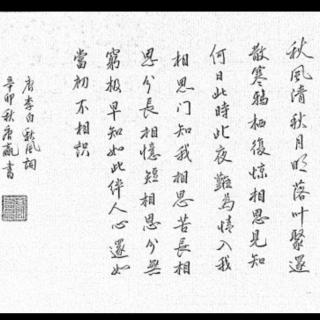 秋风清秋月明落叶聚还
散寒鸦栖复惊相思见知
何日此時此夜難為情入我
相思门知我相思苦長相
思兮長相憶短相思兮無
窮极早知如此伴人心還如
當初不相識
唐李白秋风詞
辛卯秋唐瀛書